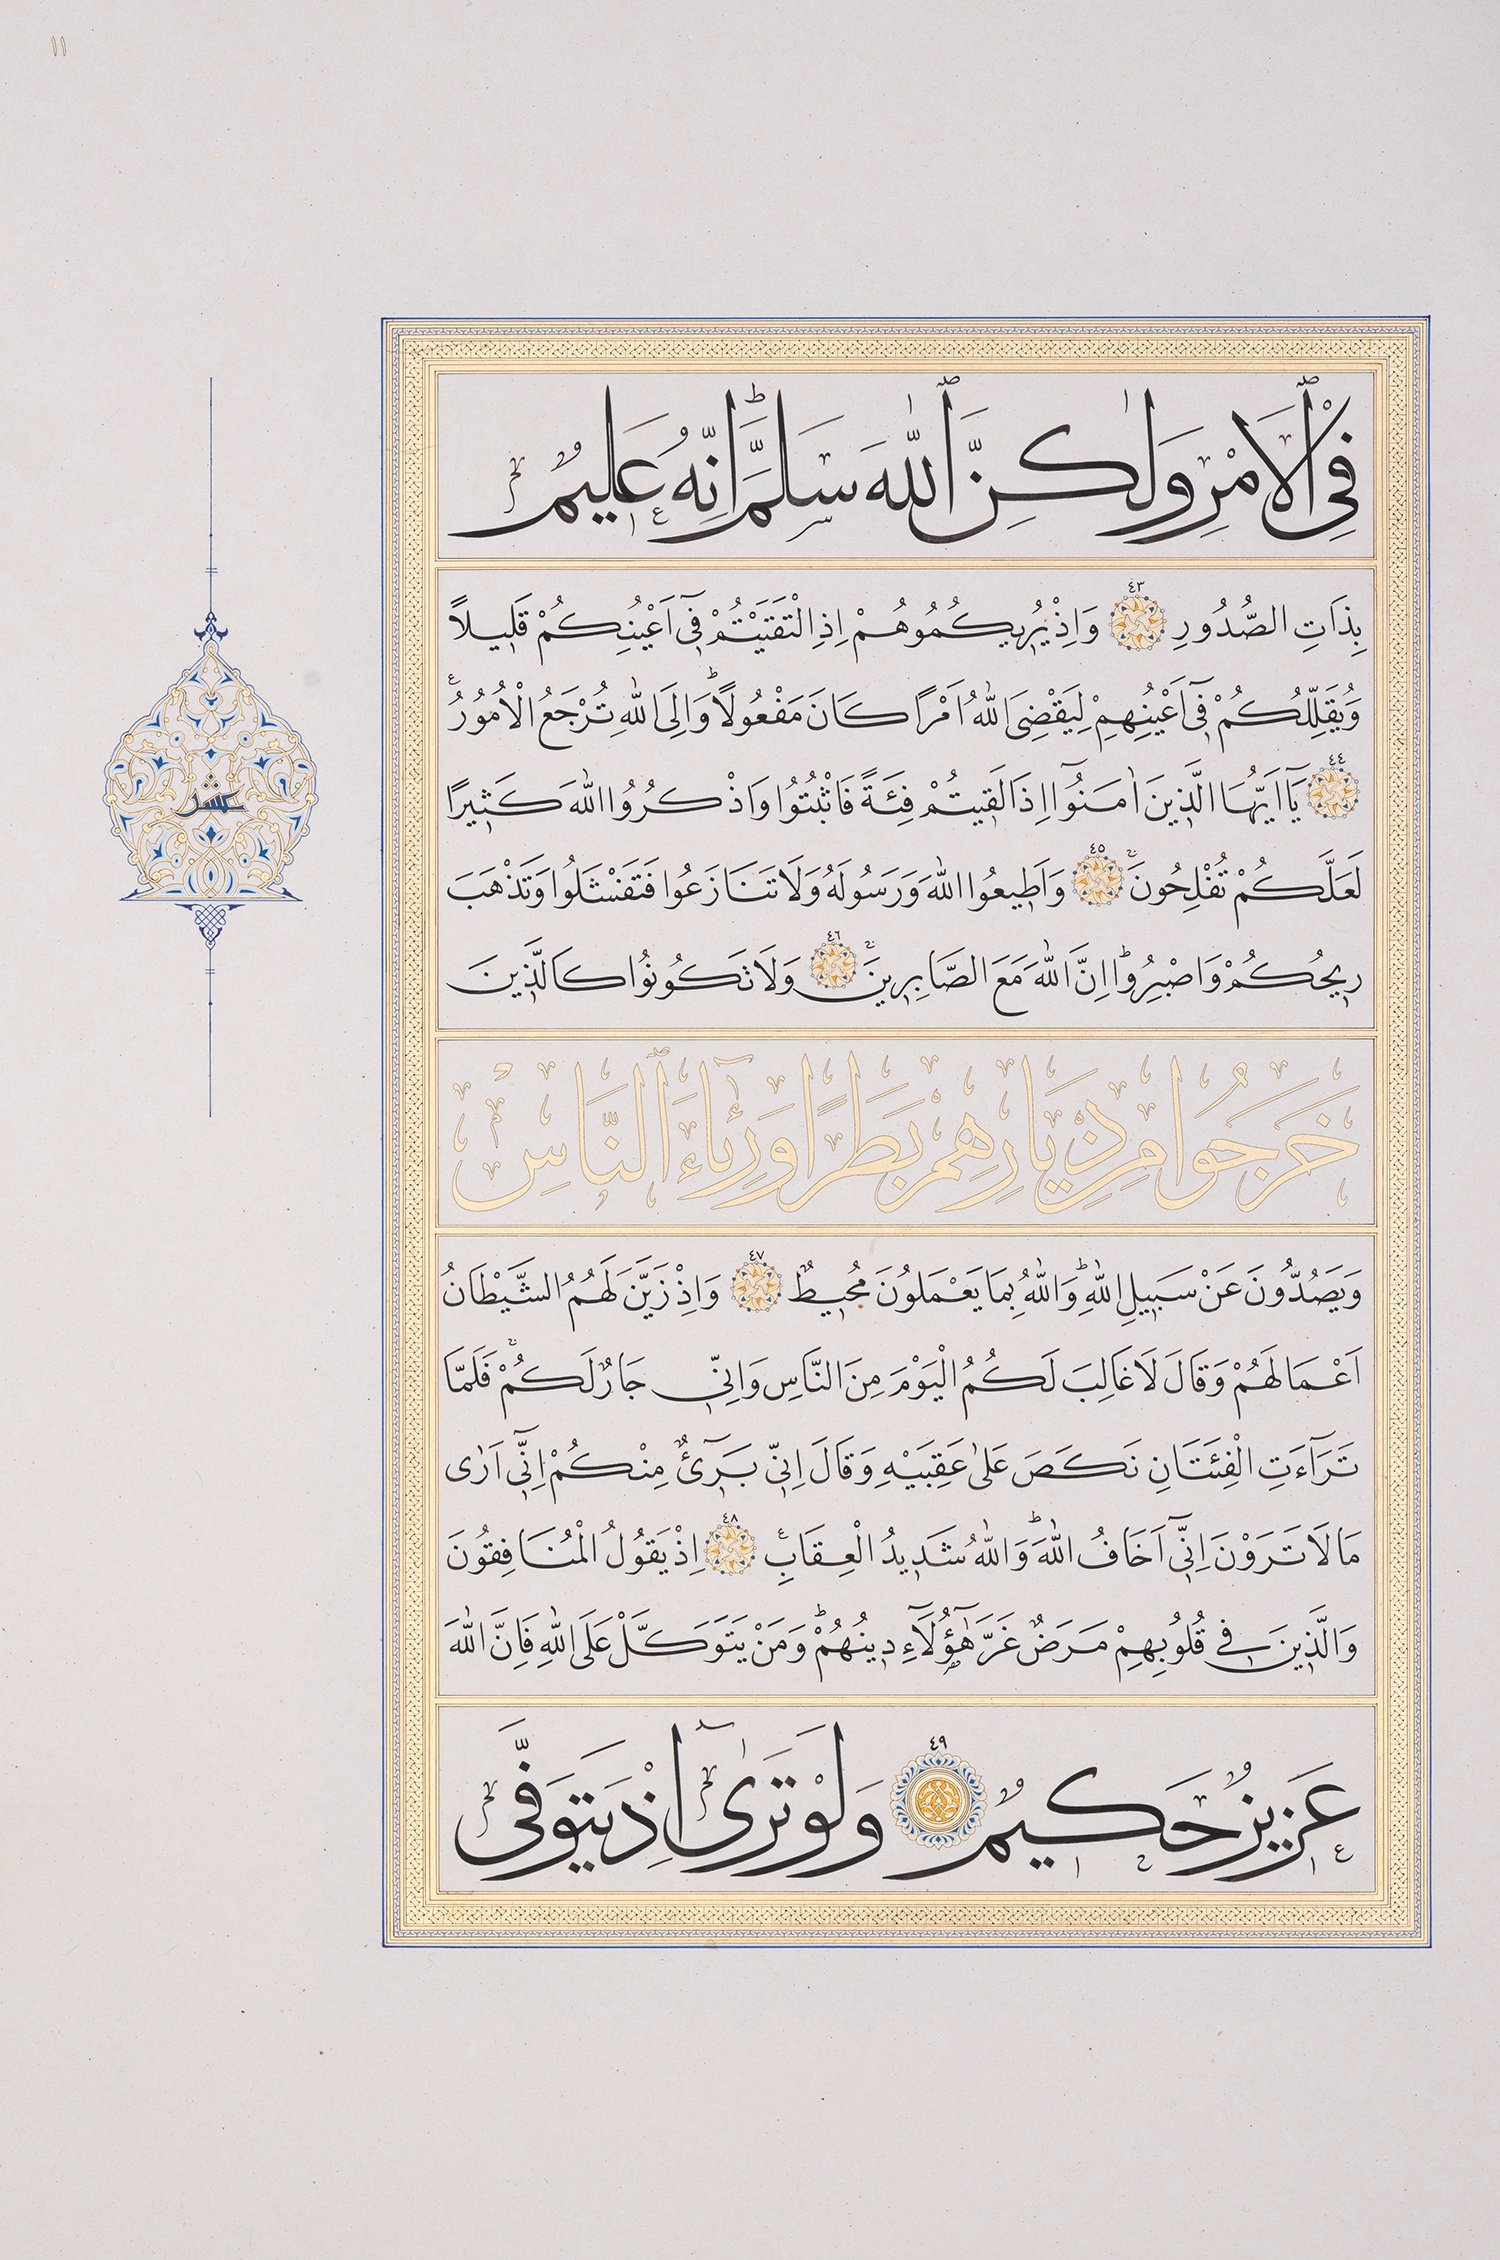 ١١
فِي الْاَمْرِ وَلٰكِنَّ اللّٰهَ سَلَّمَ ؕ اِنَّهُ عَلِيمٌ
بِذَاتِ الصُّدُورِ ٤٣ وَاِذْ يُرِيكُمُوهُمْ اِذِ الْتَقَيْتُمْ فِٓي اَعْيُنِكُمْ قَلِيلًا
وَيُقَلِّلُكُمْ فِٓي اَعْيُنِهِمْ لِيَقْضِيَ اللّٰهُ اَمْرًا كَانَ مَفْعُولًا ؕ وَاِلَى اللّٰهِ تُرْجَعُ الْاُمُورُ
٤٤ يَٓا اَيُّهَا الَّذِينَ اٰمَنُٓوا اِذَا لَقِيتُمْ فِئَةً فَاثْبُتُوا وَاذْكُرُوا اللّٰهَ كَثِيرًا
لَعَلَّكُمْ تُفْلِحُونَ ٤٥ وَاَطِيعُوا اللّٰهَ وَرَسُولَهُ وَلَا تَنَازَعُوا فَتَفْشَلُوا وَتَذْهَبَ
رِيحُكُمْ وَاصْبِرُوا ؕ اِنَّ اللّٰهَ مَعَ الصَّابِرِينَ ٤٦ وَلَا تَكُونُوا كَالَّذِينَ
خَرَجُوا مِنْ دِيَارِهِمْ بَطَرًا وَرِئَٓاءَ النَّاسِ
وَيَصُدُّونَ عَنْ سَبِيلِ اللّٰهِ ؕ وَاللّٰهُ بِمَا يَعْمَلُونَ مُحِيطٌ ٤٧ وَاِذْ زَيَّنَ لَهُمُ الشَّيْطَانُ
اَعْمَالَهُمْ وَقَالَ لَا غَالِبَ لَكُمُ الْيَوْمَ مِنَ النَّاسِ وَاِنِّي جَارٌ لَكُمْ فَلَمَّا
تَرَٓاءَتِ الْفِئَتَانِ نَكَصَ عَلٰى عَقِبَيْهِ وَقَالَ اِنِّي بَرِٓيءٌ مِنْكُمْ اِنِّٓي اَرٰى
مَا لَا تَرَوْنَ اِنِّٓي اَخَافُ اللّٰهَ ؕ وَاللّٰهُ شَدِيدُ الْعِقَابِ ٤٨ اِذْ يَقُولُ الْمُنَافِقُونَ
وَالَّذِينَ فِي قُلُوبِهِمْ مَرَضٌ غَرَّ هٰٓؤُلَٓاءِ دِينُهُمْ ؕ وَمَنْ يَتَوَكَّلْ عَلَى اللّٰهِ فَاِنَّ اللّٰهَ
عَزِيزٌ حَكِيمٌ ٤٩ وَلَوْ تَرٰٓى اِذْ يَتَوَفَّى
عشر